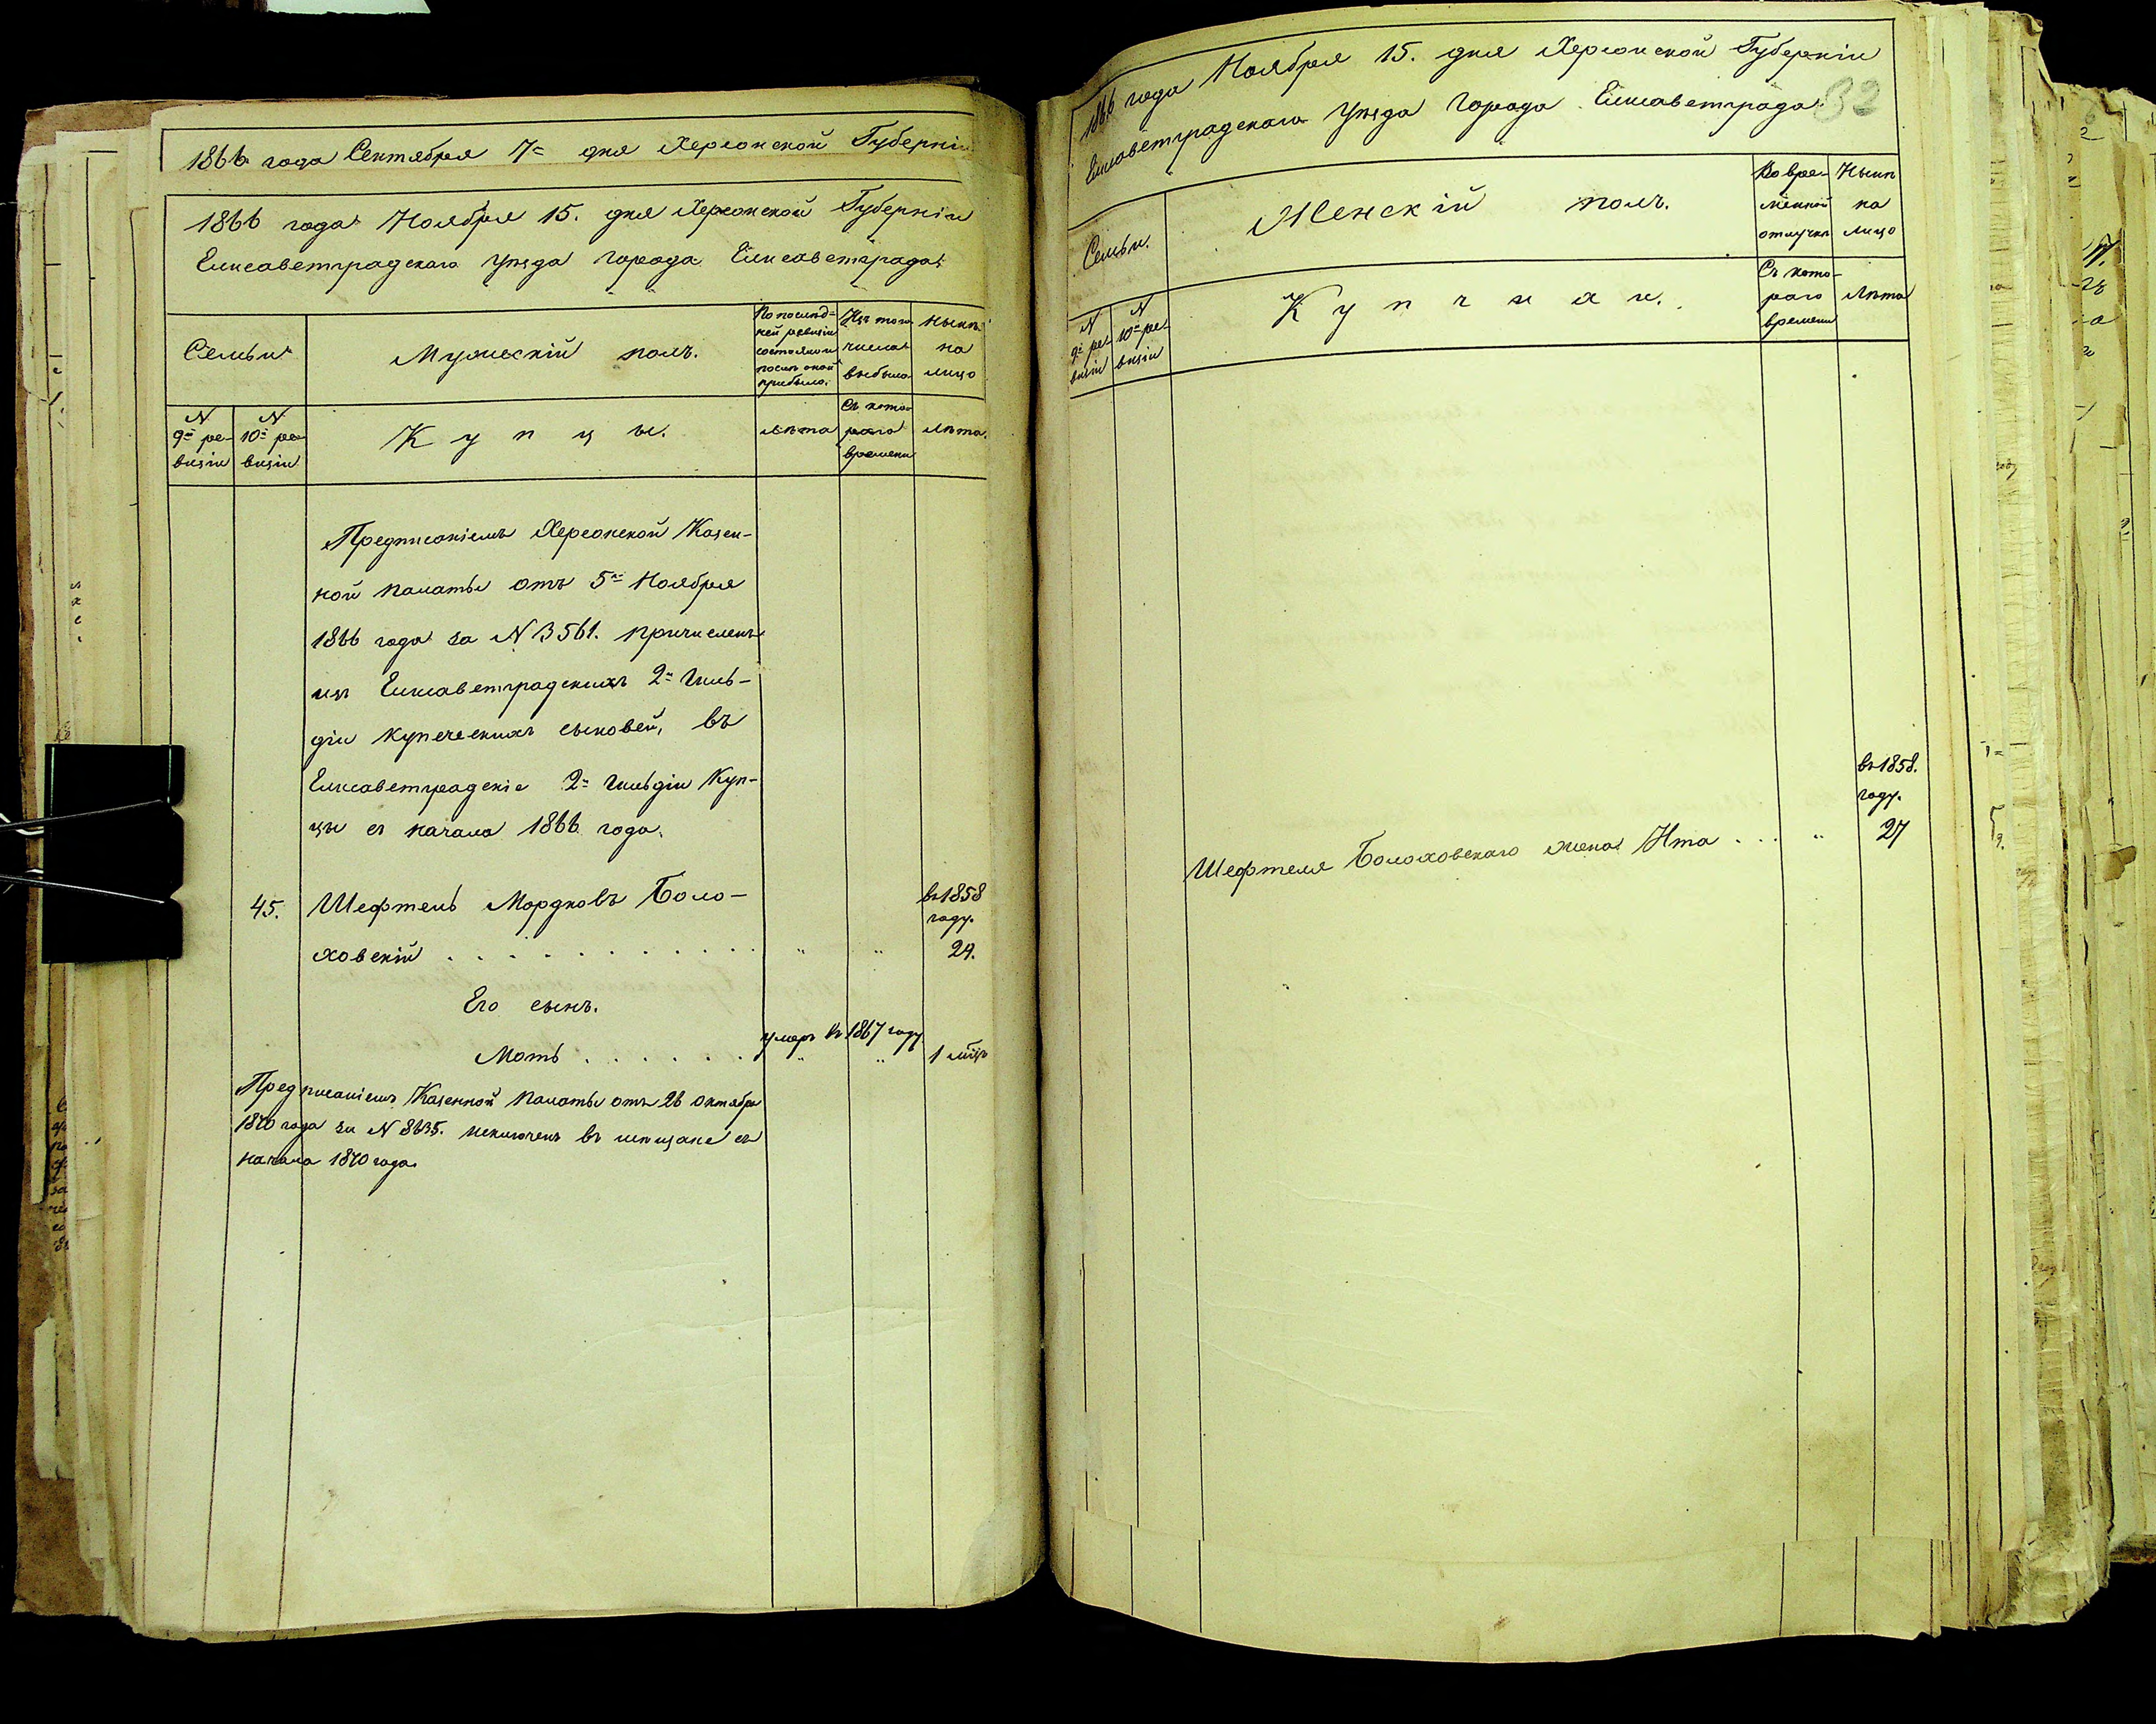 1866 года Сентября 7го дня Херсонской Губерніи
1866 года Ноября 15. дня Херсонской Губерніи
Елисаветградскаго уѣзда города Елисаветграда.
Семьи
Мужескій полъ.
По послѣд-
ней ревизіи
состояло и
послѣ оной
прибыло.
Изъ того
числа
выбыло
Нынѣ
на
лицо
N
9й ре-
визіи
N
10й ре-
визіи
Купцы.
Лѣта
Съ кото-
раго
времени
Лѣта.
Предписаніемъ Херсонской Казен-
ной палаты отъ 5го Ноября
1866 года за N 3561. причисленъ
изъ Елисаветградскихъ 2й гиль-
діи купеческихъ сыновей, въ
Елисаветградскіе 2й гильдіи Куп-
цы съ начала 1866 года.
45. Шефтель Мордковъ Боло-
въ 1858
году.
ховскій . . . . . . . . . . . " " 24.
Его сынъ.
умеръ въ 1867 году
Моть . . . . . . " " 1 мѣц
Предписаніемъ Казенной палаты отъ 26 октября
1870 года за N 8635. исключенъ въ мещане съ
начала 1870 года.
1866 года Ноября 15. дня Херсонской Губерніи
Елисаветградскаго уѣзда города Елисаветграда.
32
Семьи.
Женскій полъ.
Во вре-
менной
отлучкѣ
Нынѣ
на
лицо
N
9й ре-
визіи
N
10й ре-
визіи
Купчихи.
Съ кото-
раго
времени
Лѣта
въ 1858.
году.
Шефтеля Болоховскаго жена Ита . . . " 27